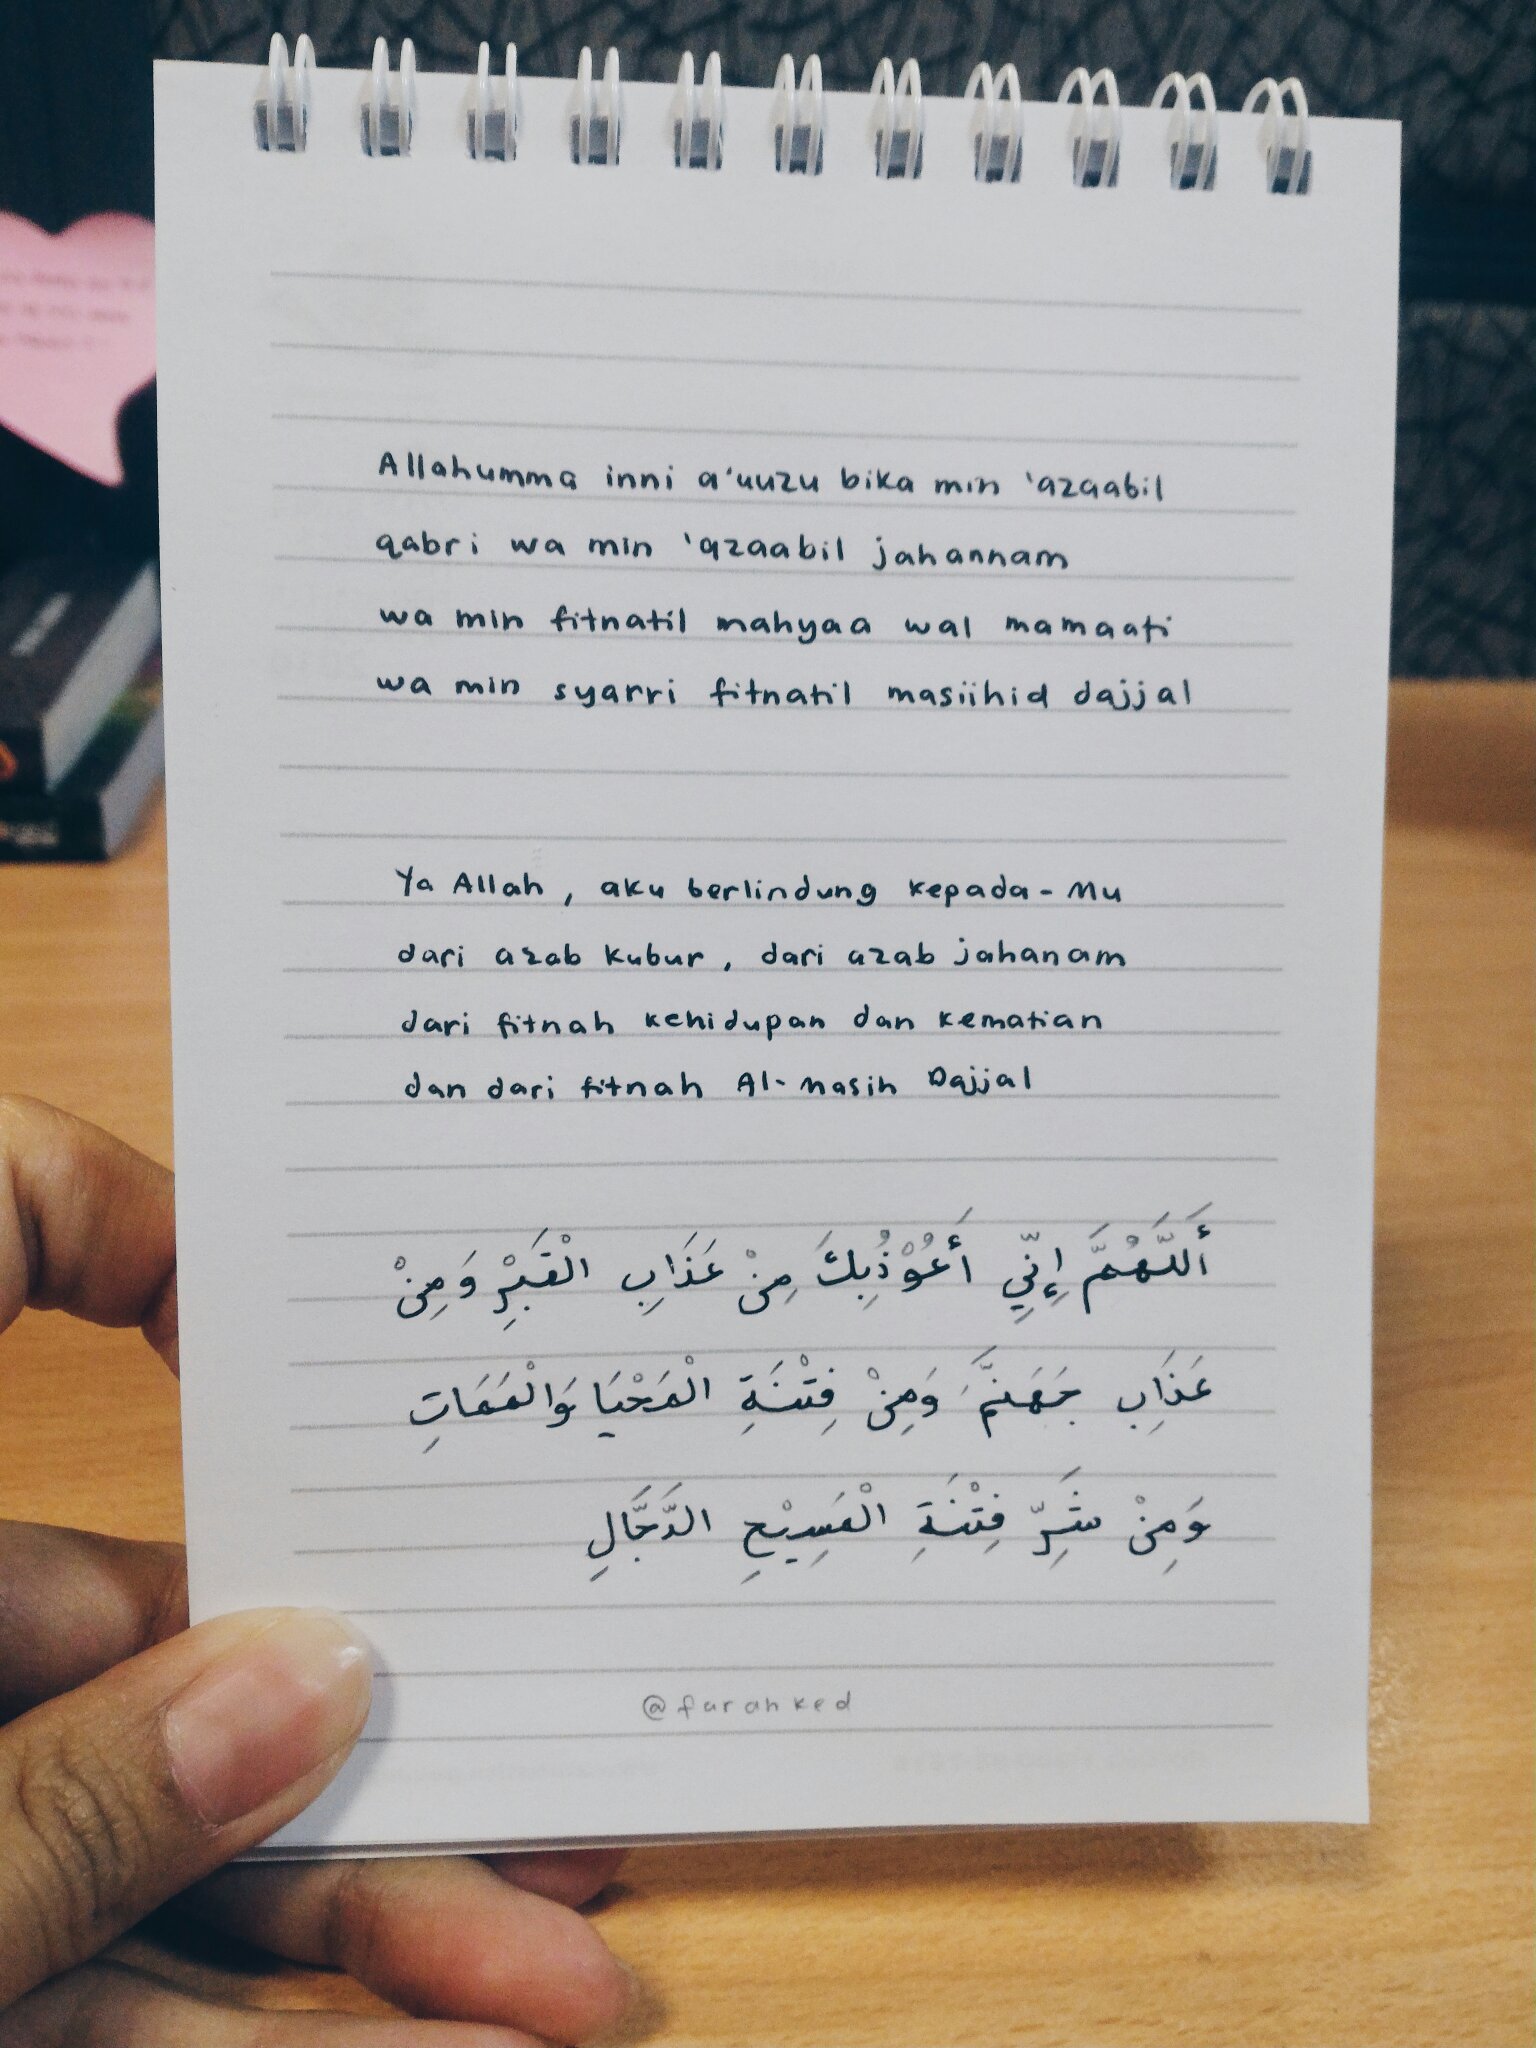 Allahumma inni a'uuzu bika min 'azaabil
qabri wa min 'azaabil jahannam
wa min fitnatil mahyaa wal mamaati
wa min syarri fitnatil masiihid dajjal
Ya Allah, aku berlindung kepada-Mu
dari azab kubur, dari azab jahanam
dari fitnah kehidupan dan kematian
dan dari fitnah Al-Masih Dajjal
أَللَّهُمَّ إِنِّي أَعُوْذُبِكَ مِنْ عَذَابِ الْقَبْرِ وَمِنْ
عَذَابِ جَهَنَّمَ وَمِنْ فِتْنَةِ الْمَحْيَا وَالْمَمَاتِ
وَمِنْ شَرِّ فِتْنَةِ الْمَسِيْحِ الدَّجَّالِ
@farahked